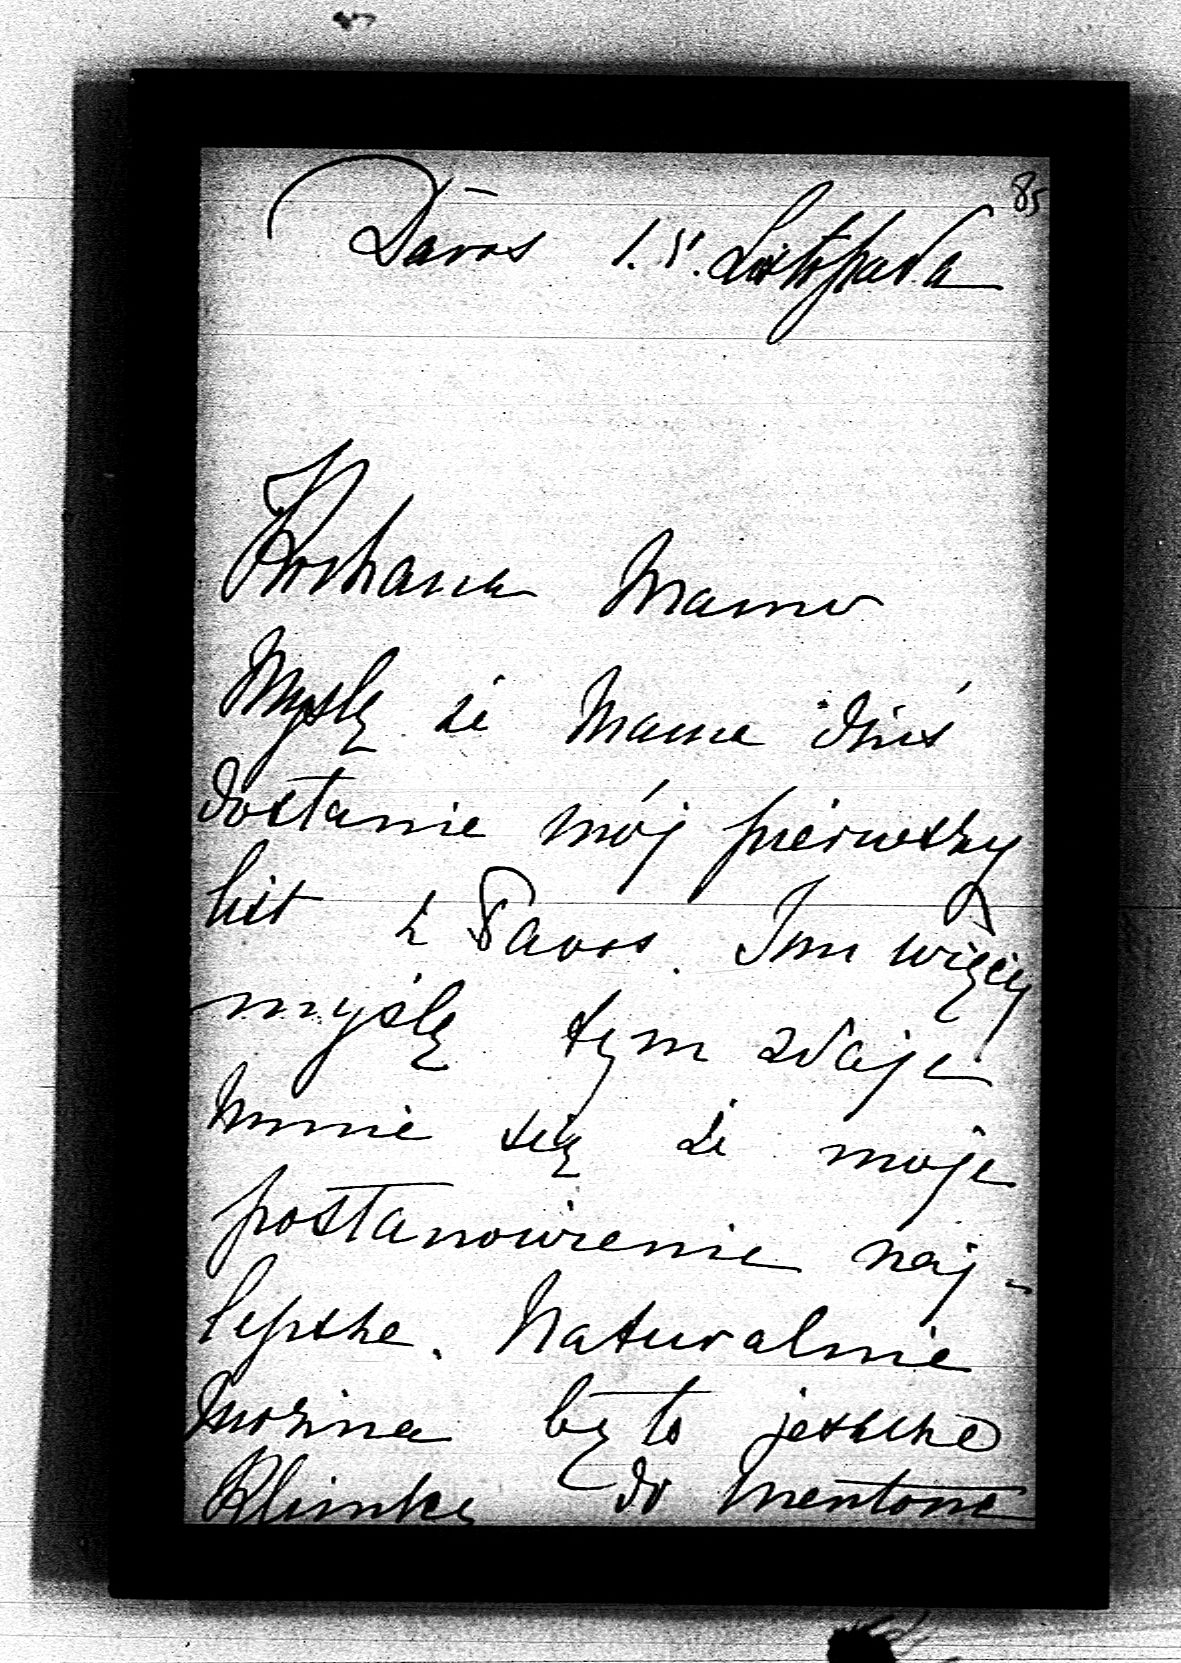 85
Davos 15. Listopada
Kochana Mamo
Myślę że Mama dziś
dostanie mój pierwszy
list z Davos. Im więcej
myślę tym zdaje
mnie się że moje
postanowienie naj-
lepsze. Naturalnie
można było jeszcze
Klimkę do Mentone